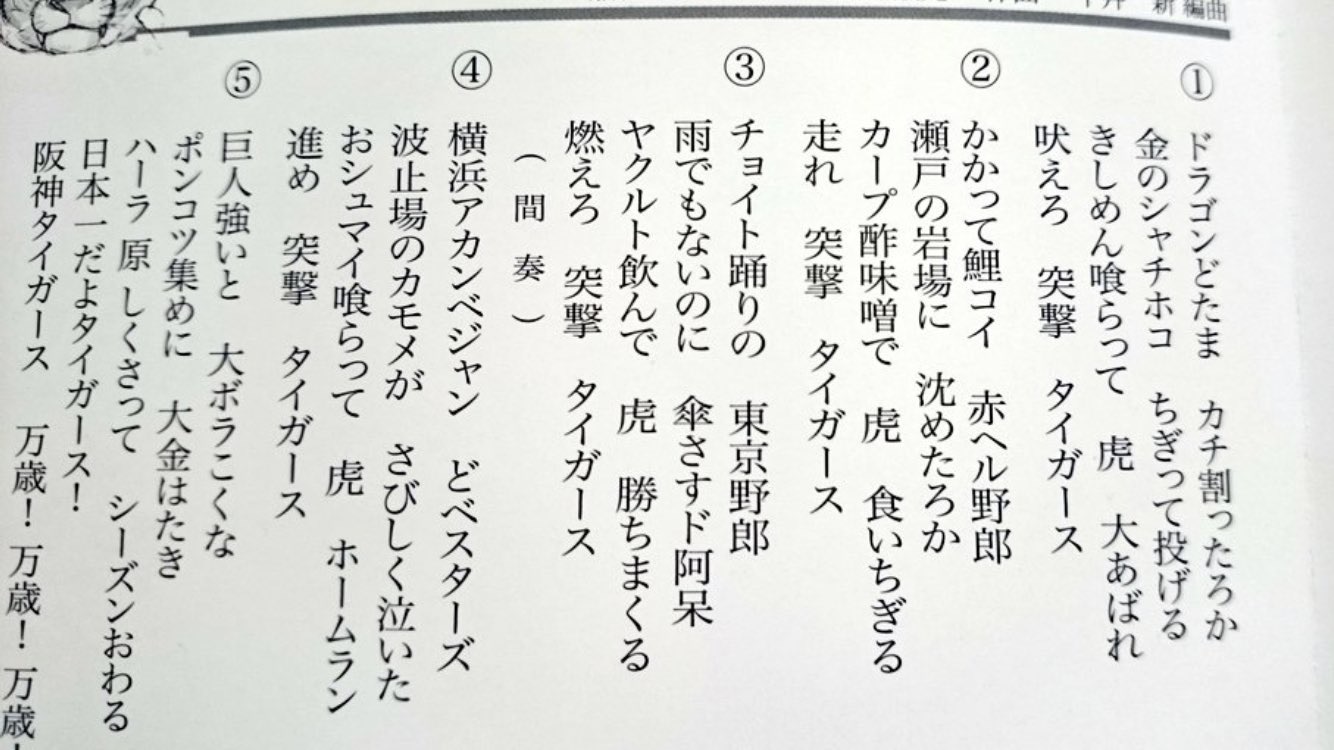 新 編曲
①
ドラゴンどたま カチ割ったろか
金のシャチホコ ちぎって投げる
きしめん喰らって 虎 大あばれ
吠えろ 突撃 タイガース
②
かかって鯉コイ 赤ヘル野郎
瀬戸の岩場に 沈めたろか
カープ酢味噌で 虎 食いちぎる
走れ 突撃 タイガース
③
チョイト踊りの 東京野郎
雨でもないのに 傘さすド阿呆
ヤクルト飲んで 虎 勝ちまくる
燃えろ 突撃 タイガース
(間奏)
④
横浜アカンベジャン どベスターズ
波止場のカモメが さびしく泣いた
おシュマイ喰らって 虎 ホームラン
進め 突撃 タイガース
⑤
巨人強いと 大ボラこくな
ポンコツ集めに 大金はたき
ハーラ 原 しくさって シーズンおわる
日本一だよタイガース!
阪神タイガース 万歳! 万歳! 万歳!